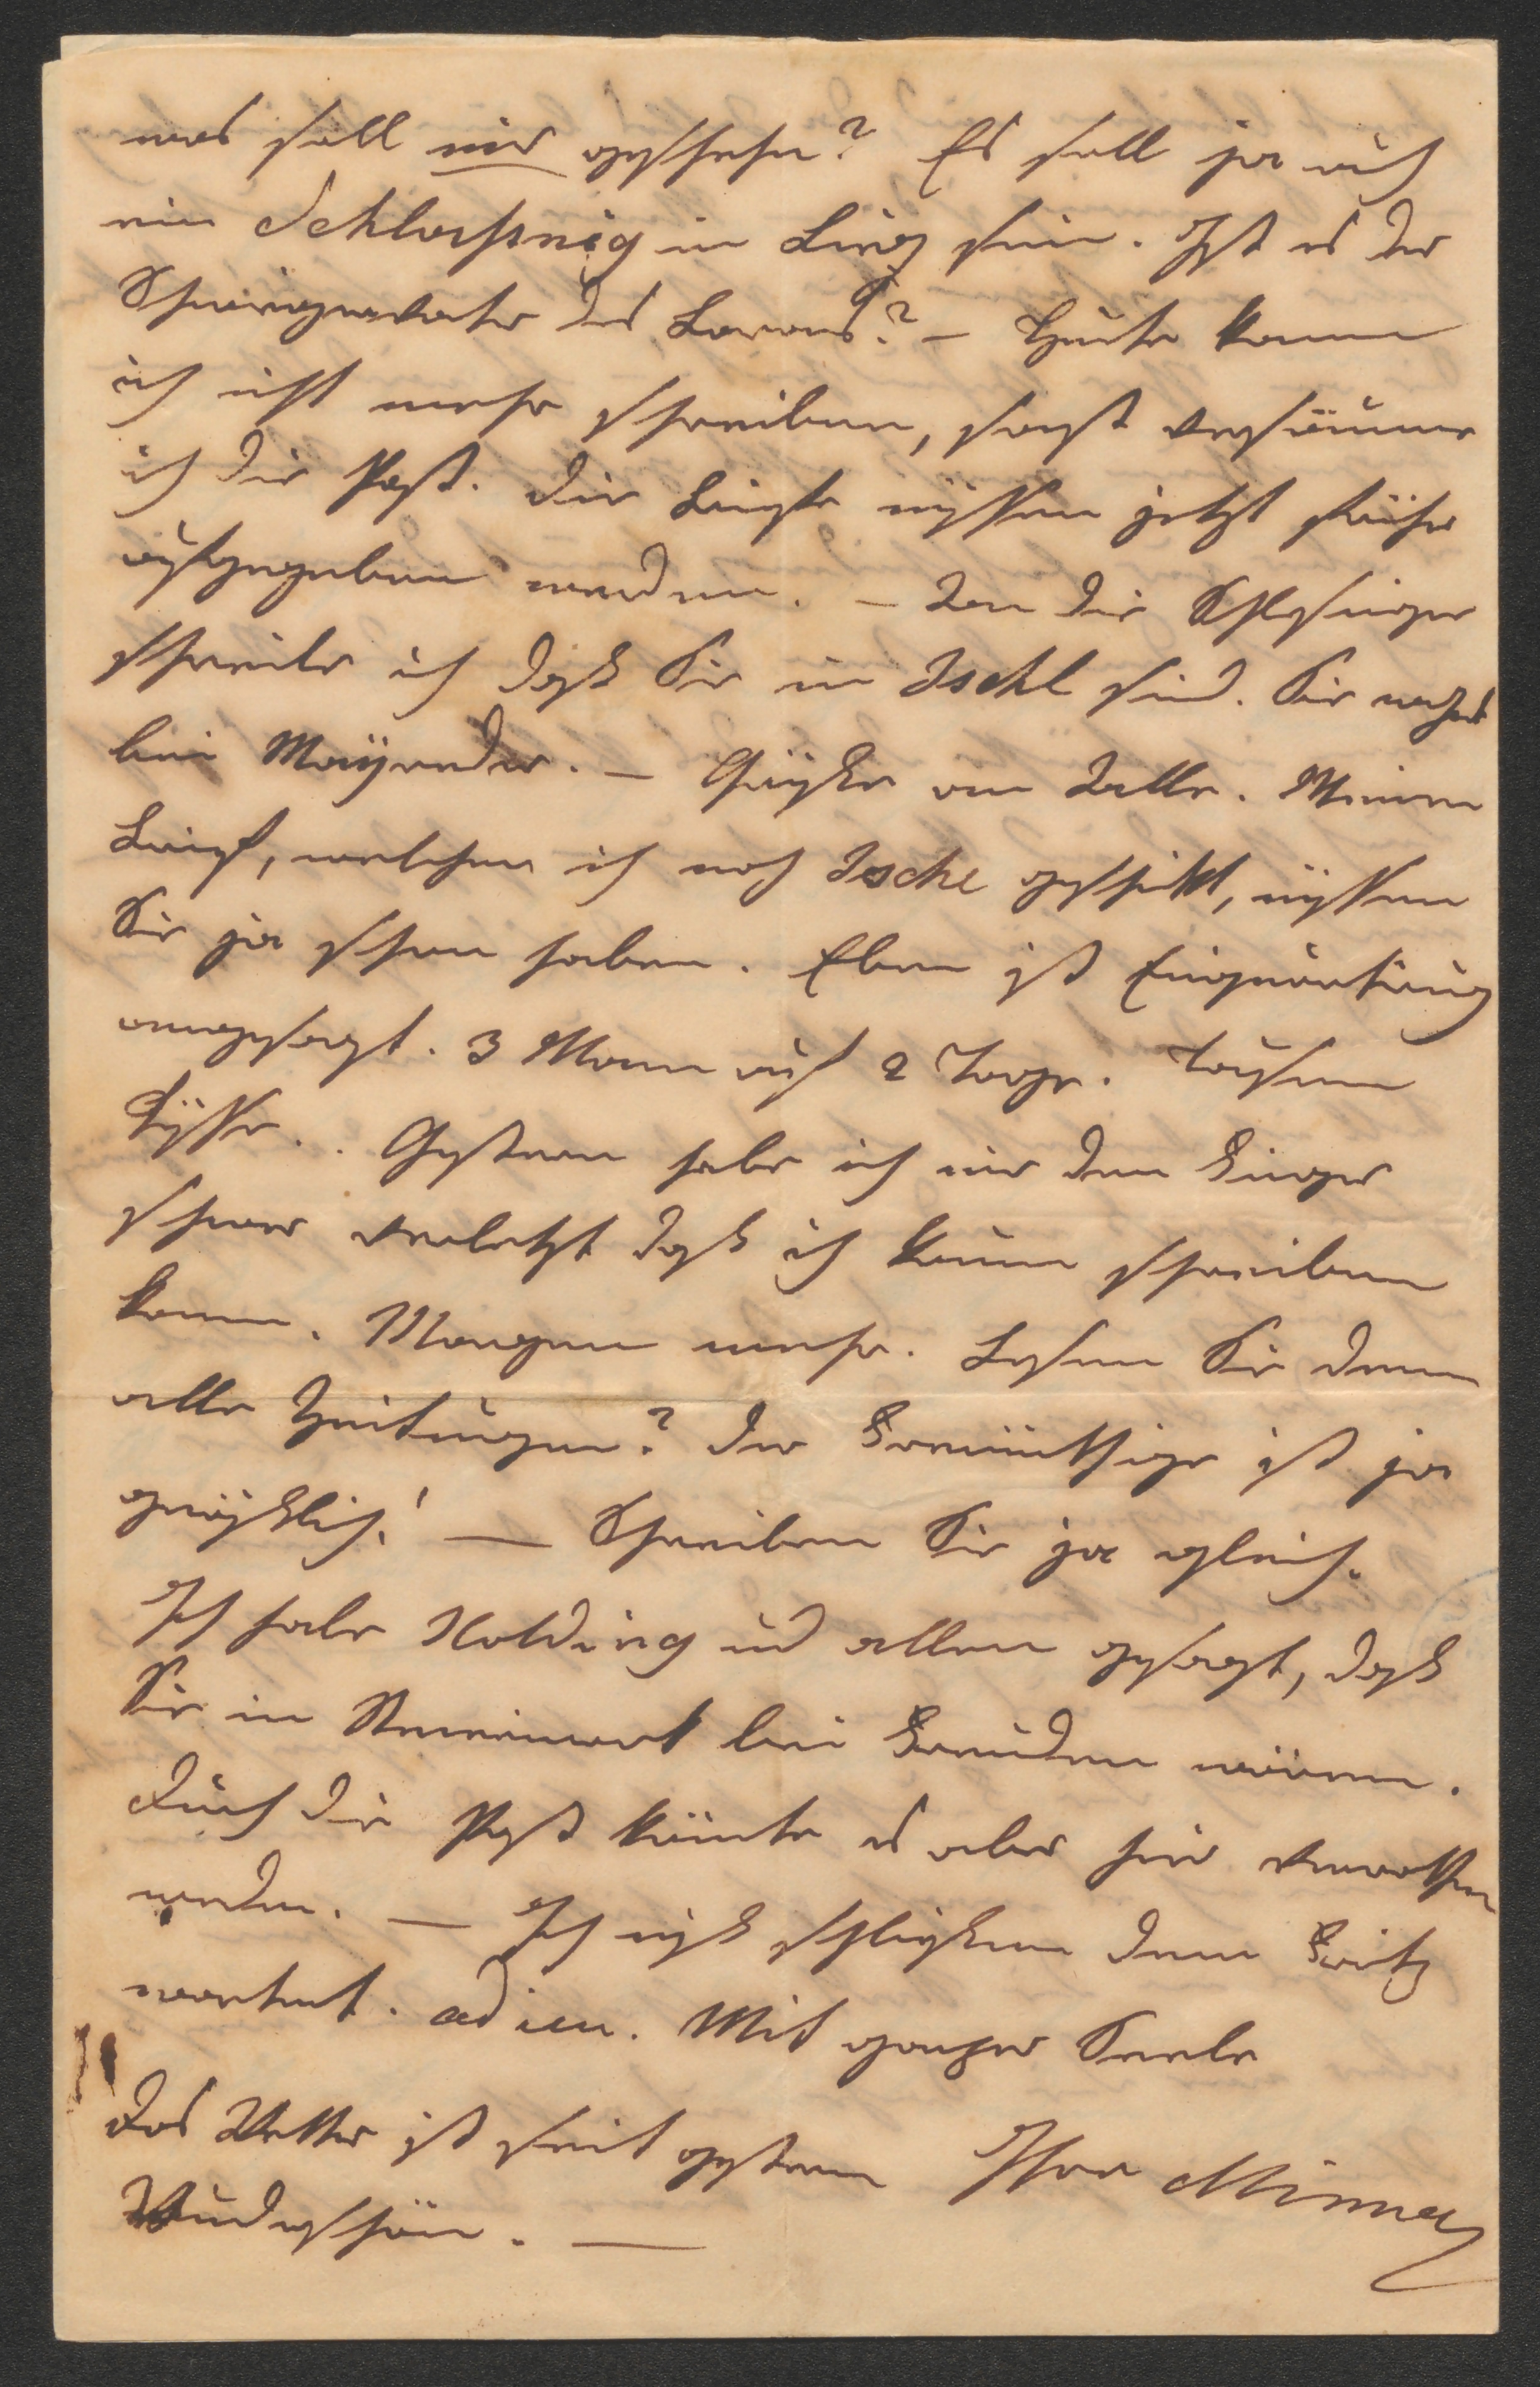 was soll mir geschehn? Es soll ja auch
ein Schloißnig in Linz sein. Ist es der
Schwiegervater des Barons? – Heute kann
ich nicht mehr schreiben, sonst versäume
ich die Post. Die Briefe müssen jetzt früher
aufgegeben werden. – An die Schlesinger
schreibe ich daß Sie in Ischl sind. Sie wohnt
bei Mayreder. – Grüße an Alle. Meinen
Brief, welchen ich nach Ischl geschickt, müssen
Sie ja schon haben. Eben ist Einquartirung
angesagt. 3 Mann auf 2 Tage. Tausen
Küsse. Gestern habe ich mir den Finger
schwer verletzt daß ich kaum schreiben
kann. Morgen mehr. Lesen Sie denn
alle Zeitungen? Der Freimüthige ist ja
gräßlich! — Schreiben Sie ja gleich.
Ich habe Nolding und allen gesagt, daß
Sie in Steiermark bei Freunden wären.
Durch die Post könnte es aber hier verrathen
werden. — Ich muß schließen denn Fritz
wartet. adieu. Mit ganzer Seele
Das Wetter ist seit gestern Ihre Minna
Wunderschön. —